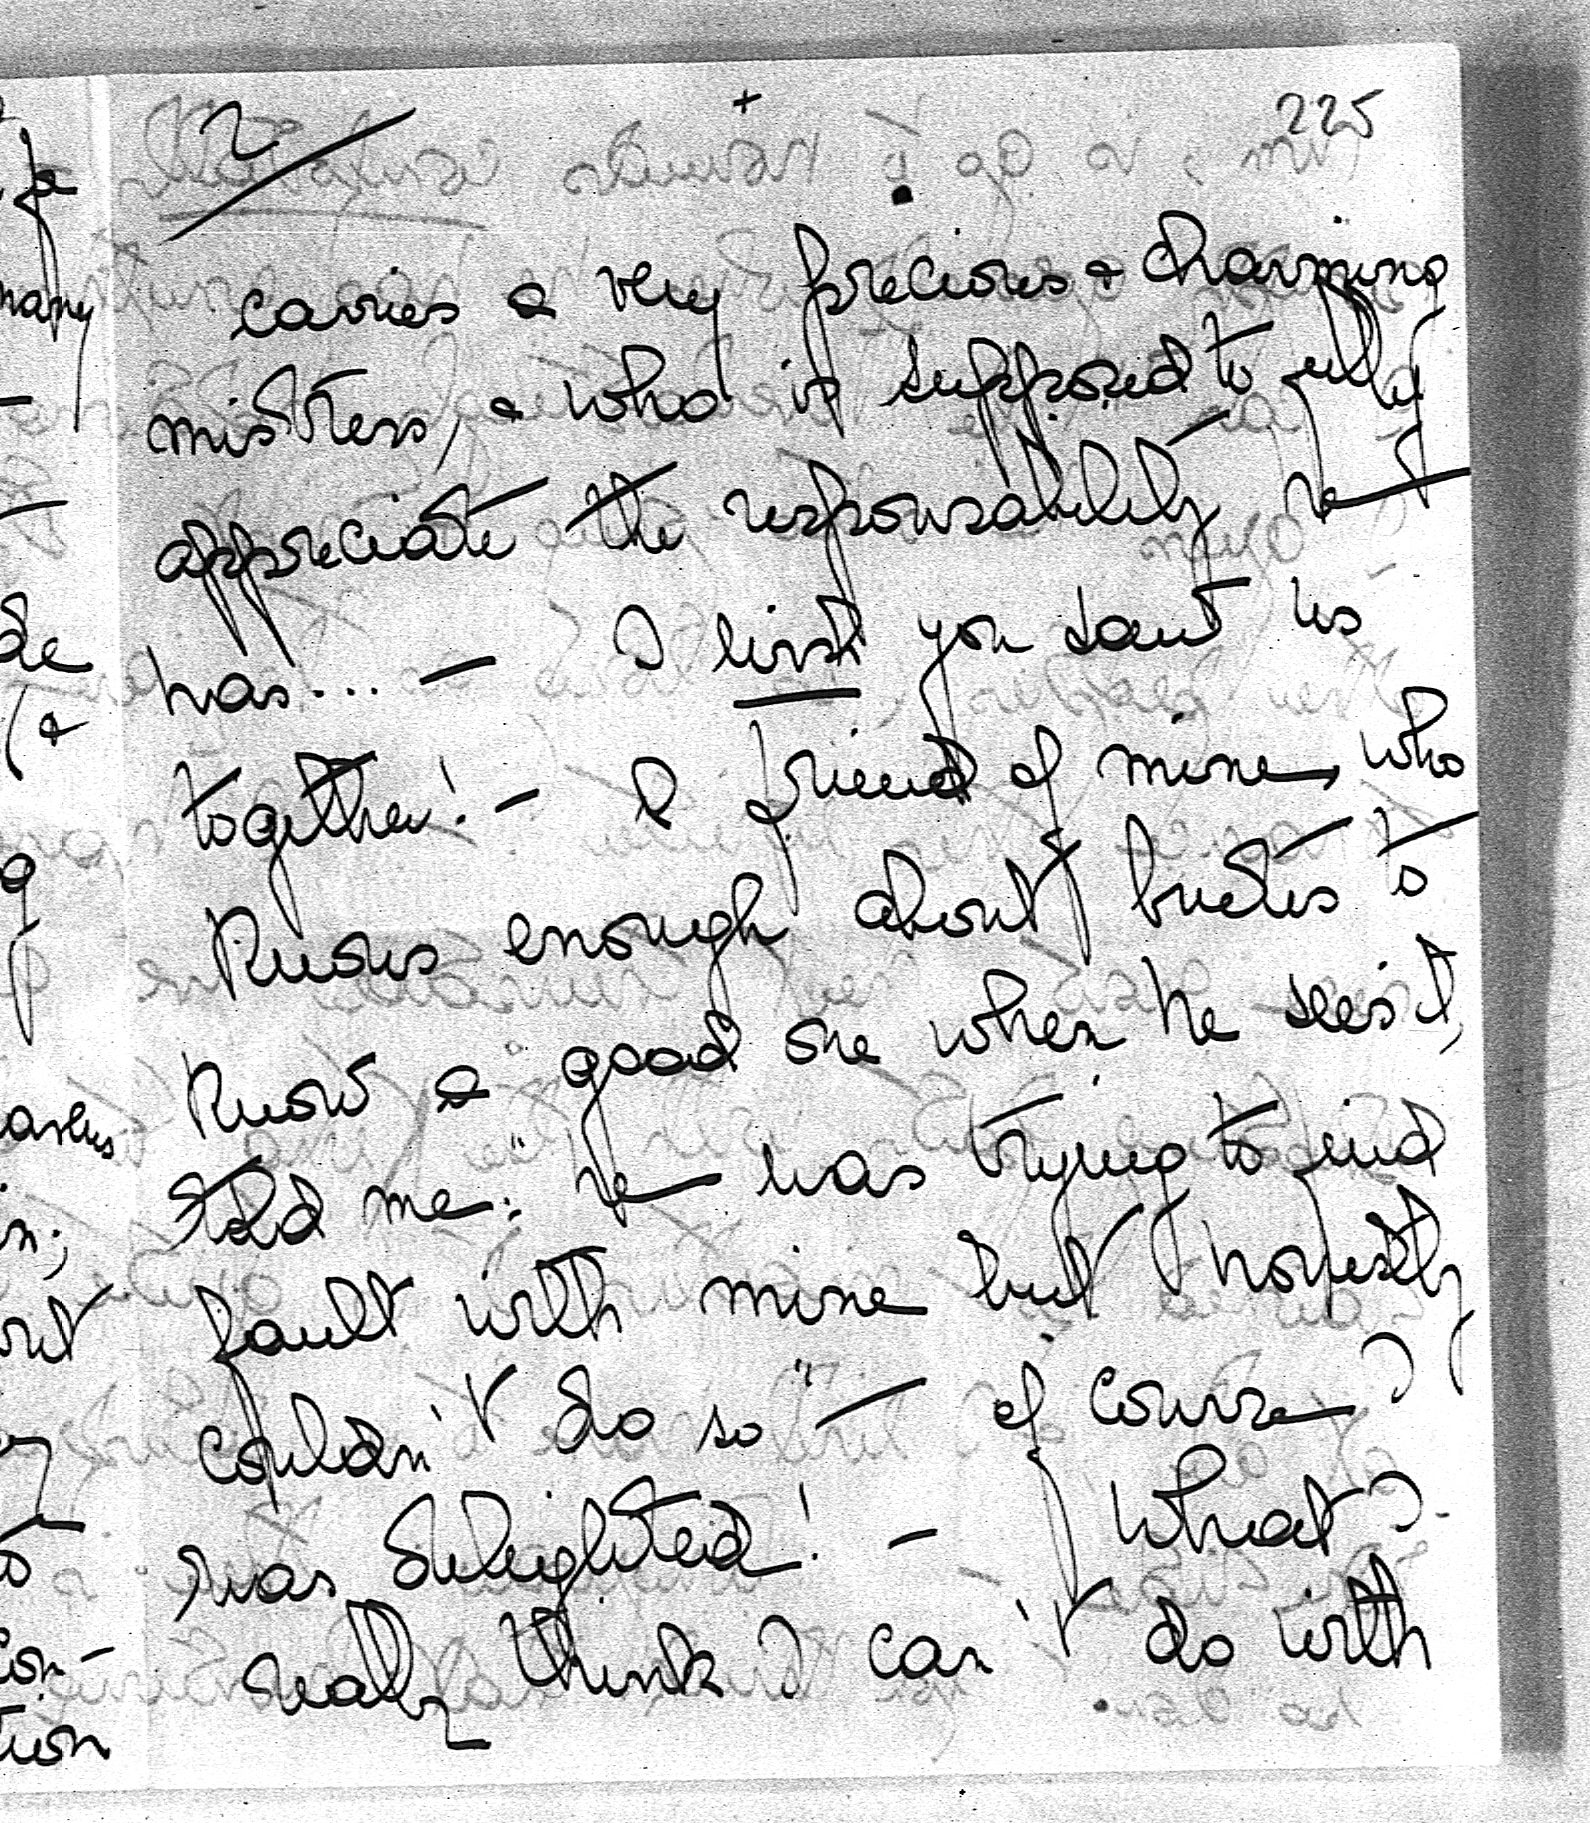 2
+
225
carries a very precious & charming
mistress, & who is supposed to fully
appreciate the responsability he
has... — I wish you saw us
together! — A friend of mine, who
knows enough about brutes to
know a good one when he sees it,
told me: "he was trying to find
fault with mine but honestly
couldn't do so" — of course I
was delighted! — What I
really think I can't do with